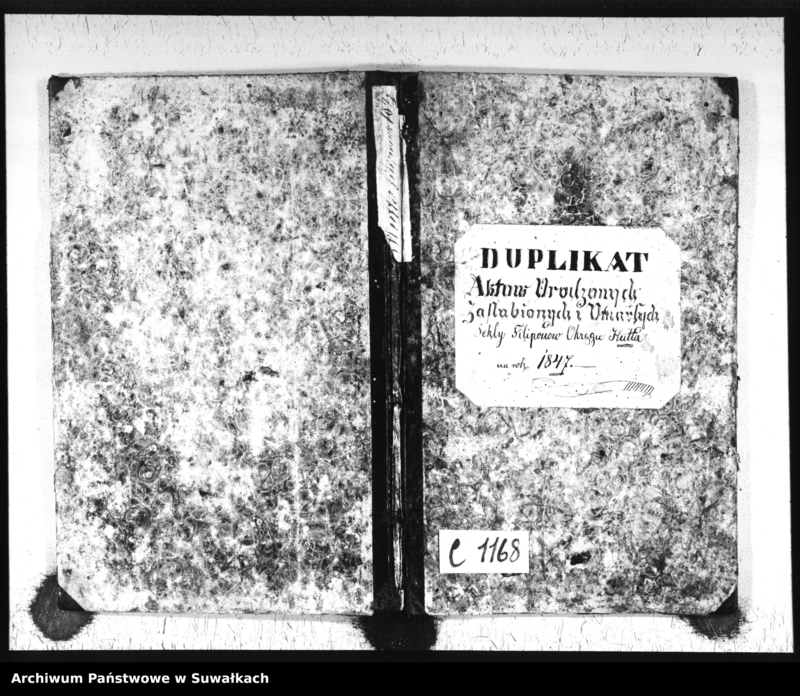 DUPLIKAT
Aktow Urodzonych
Zaslubionych i Umarłych
Sekty Filiponow Okręgu Hutta
na rok 1847.
C 1168
Archiwum Państwowe w Suwałkach